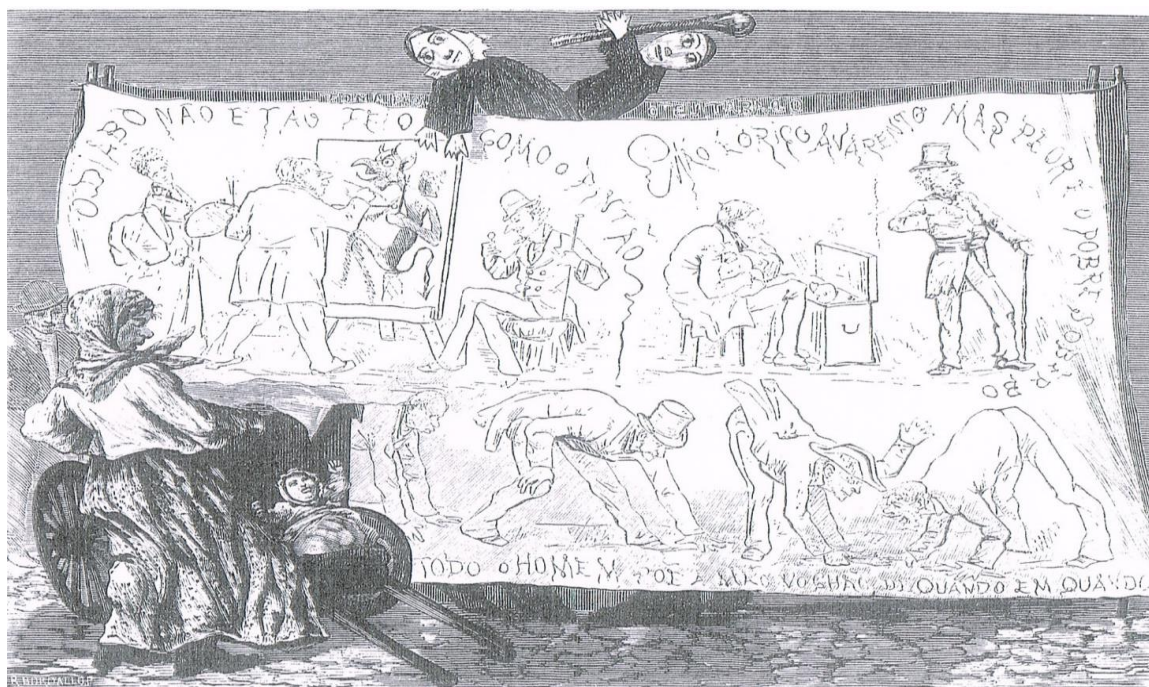 O DIABO NÃO E TÃO FEIO
COMO O PINTÃO
MÁO É O RICO AVARENTO MAS PEOR É O POBRE SOBERBO
TODO O HOMEM POE A MÃO NO CHÃO DE QUANDO EM QUANDO
R. BORDALLO P.